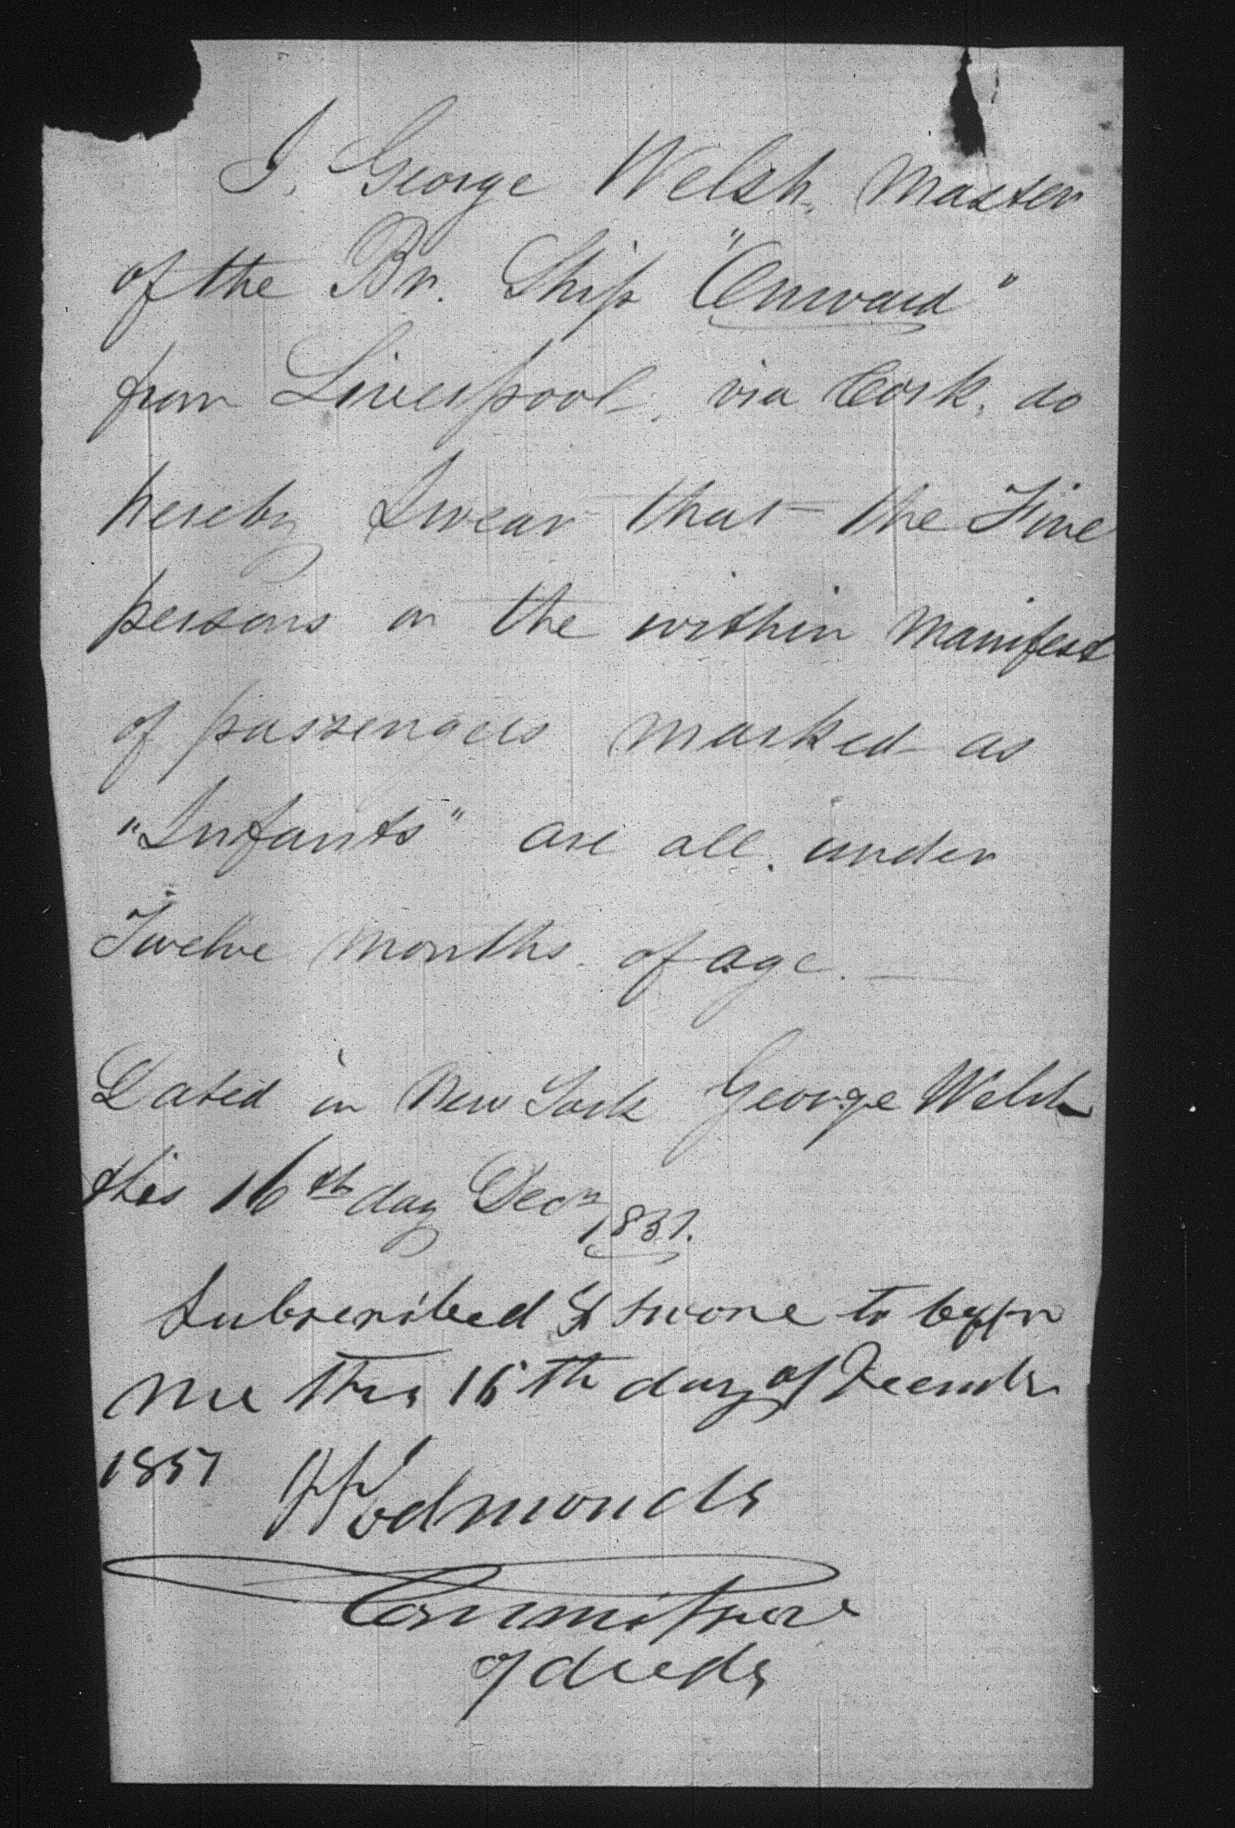 I, George Welsh, Master
of the Br. Ship "Onward"
from Liverpool, via Cork, do
hereby Swear that the Five
persons on the within Manifest
of passengers marked as
"Infants" are all under
Twelve Months of age. —
Dated in New York George Welsh
this 16th day Decr 1857.
Subscribed & swore to before
me this 16th day of December
1857 Edmonds
Commissioner
of deeds